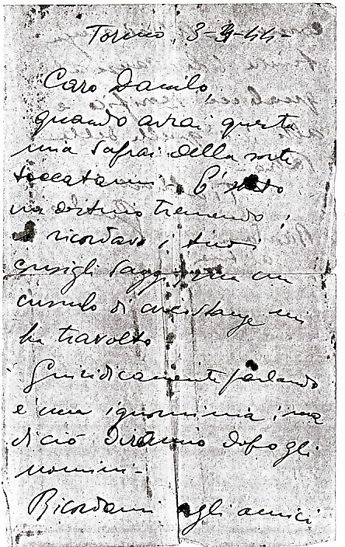 Torino, 3-4-44-
Caro Danilo,
quando avrai questa
mia saprai della sorte
toccatami. È stato
un destino tremendo,
ricordavo i tuoi
consigli saggi, ma un
cumulo di circostanze mi
ha travolto
Giuridicamente parlando
è una ignominia; ma
di ciò diranno dopo gli
uomini-
Ricordami agli amici